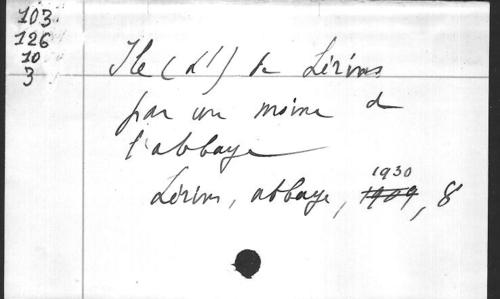 103
126
10
3
Ile (l') de Lérins
par un moine de
l'abbaye
Lérins, abbaye, 1930 ~~1909~~, 8°